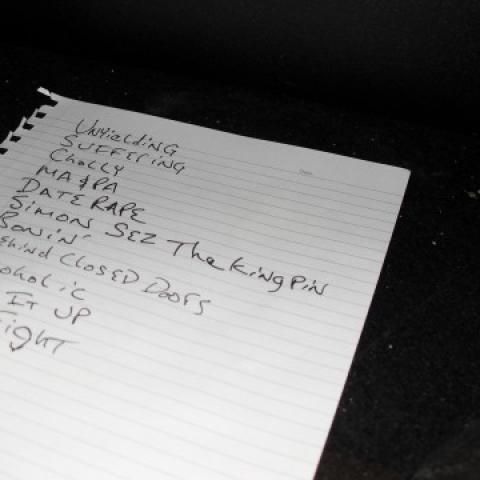 UNYIELDING
SUFFERING
CHOLLY
MA & PA
DATE RAPE
SIMON SEZ THE KINGPIN
BONIN'
EHIND CLOSED DOORS
OHOLIC
IT UP
FIGHT